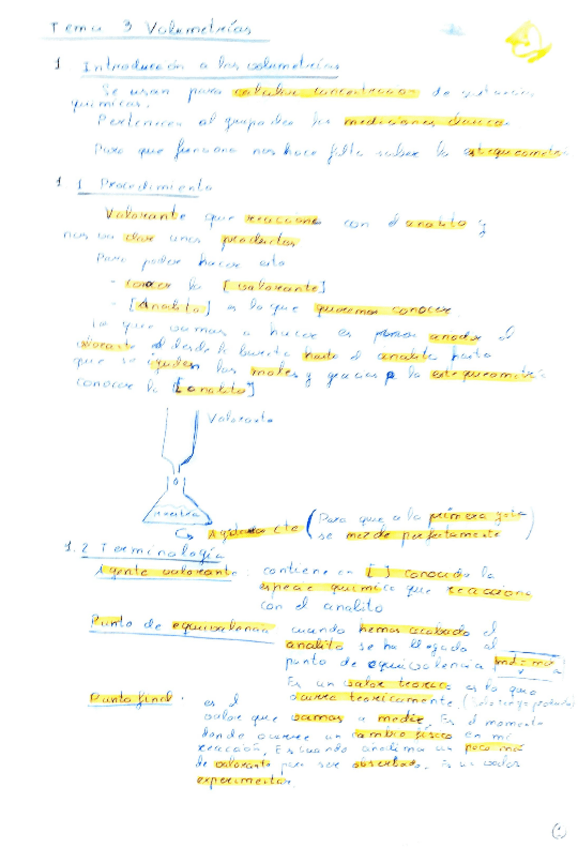 Tema 3 Volumetrías
1 Introducción a las volumetrías
Se usan para calcular concentraciones de sustancias
químicas.
Pertenecen al grupo de las mediciones clásicas
Para que funcione nos hace falta saber la estequiometría
1.1 Procedimiento
Valorante que reacciona con el analito y
nos va dar unos productos
Para poder hacer esto
- conocer la [valorante]
- [Analito] es lo que queremos conocer
Lo que vamos a hacer es añadir el
valorante desde la bureta hasta el analito hasta
que se igualen los moles y gracias a la estequiometría
conocer la [analito]
Valorante
muestra
Agitación cte (Para que a la primera gota
se mezcle perfectamente)
1.2 Terminología
Agente valorante: contiene en [ ] conocida la
especie química que reacciona
con el analito
Punto de equivalencia cuando hemos acabado el
analito se ha llegado al
punto de equivalencia
Es un valor teórico es lo que
ocurre teóricamente.
Punto final: es el
valor que vamos a medir. Es el momento
donde ocurre un cambio físico en mi
reacción. Es cuando añadimos un poco más
de valorante para ser observado. Es un valor
experimental.